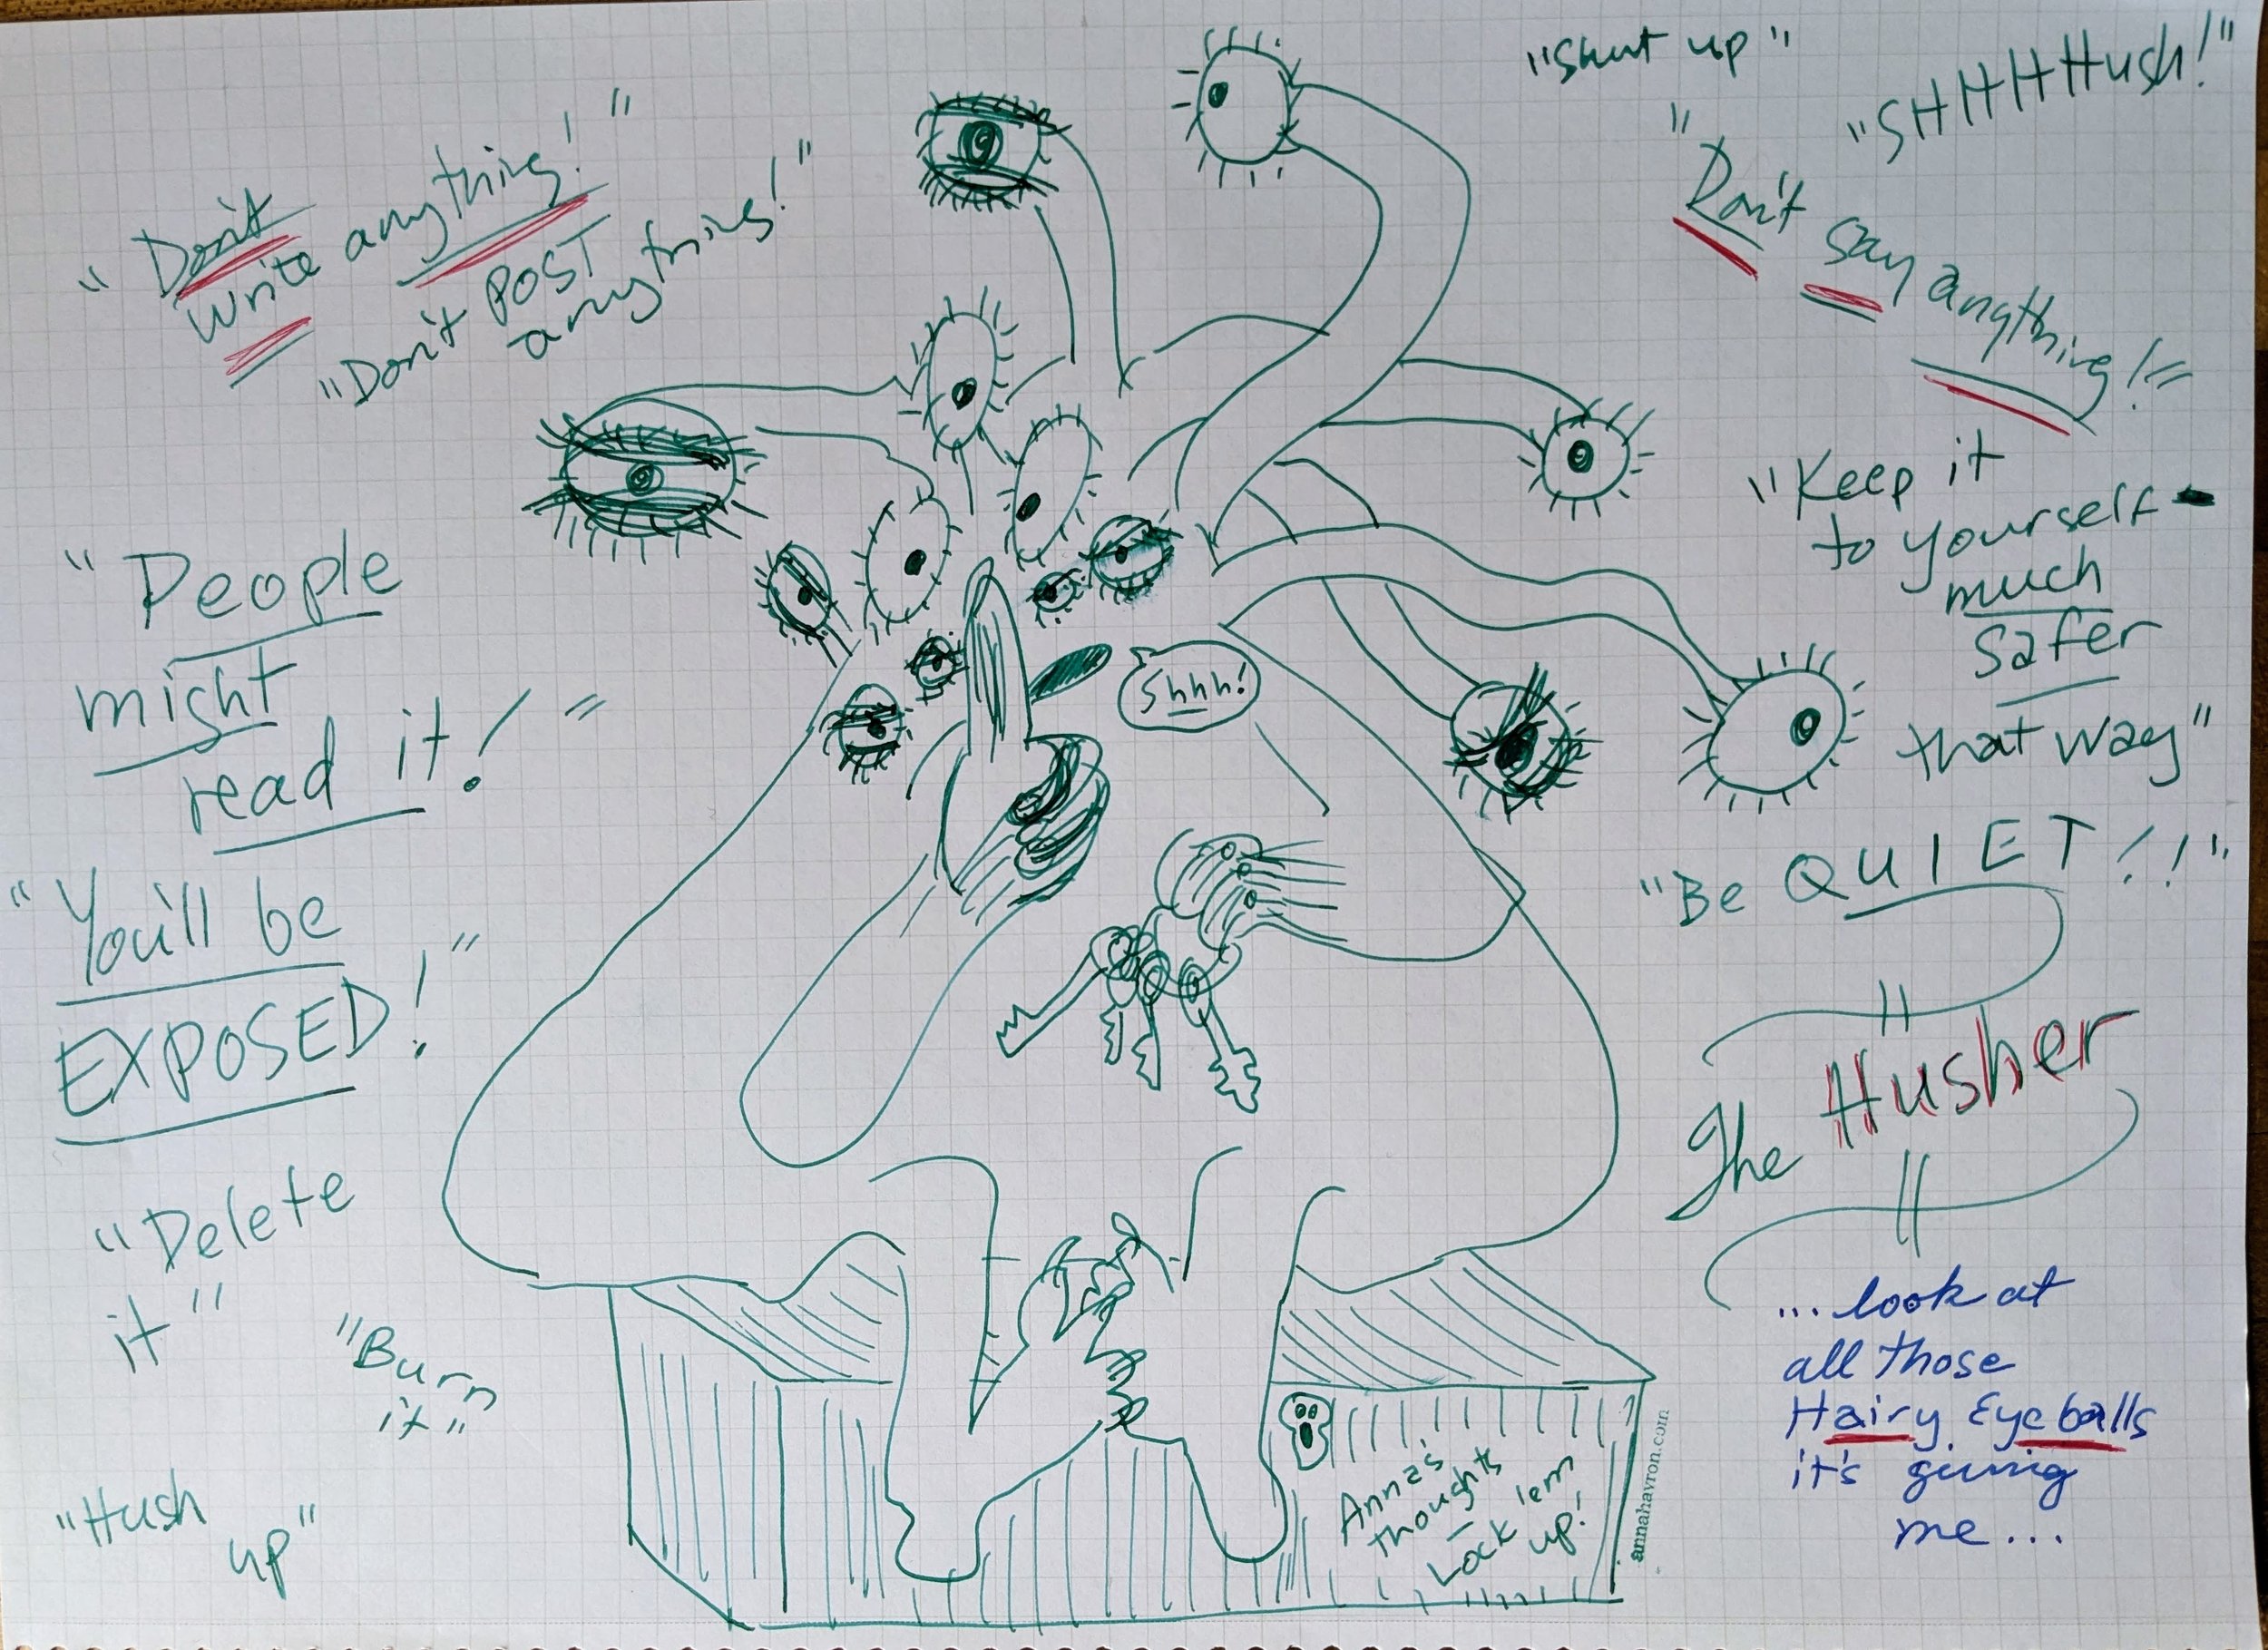 "Don't
write anything!"
"Don't POST
anything!"
"People
might
read it!"
"You'll be
EXPOSED!"
"Delete
it"
"Burn
it"
"Hush
up"
Shhh!
"Shut up"
"SHHHHush!"
"Don't say anything!"
"Keep it
to yourself-
much
safer
that way"
"Be QUIET!!"
The Husher
...look at
all those
Hairy Eyeballs
it's giving
me...
Anna's
thoughts
–
Lock 'em
up!
annahavron.com